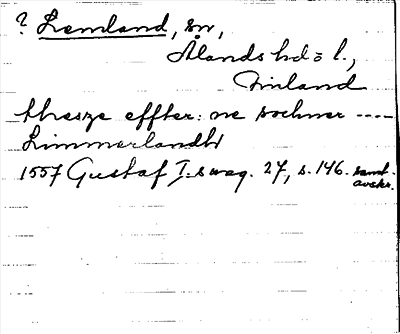 ? Lemland, sn,
Ålands hd o l.,
Finland
thesze effter: ne sochner ----
Limmerlandtt
1557 Gustaf I:s reg. 27, s. 146. samt.
avskr.